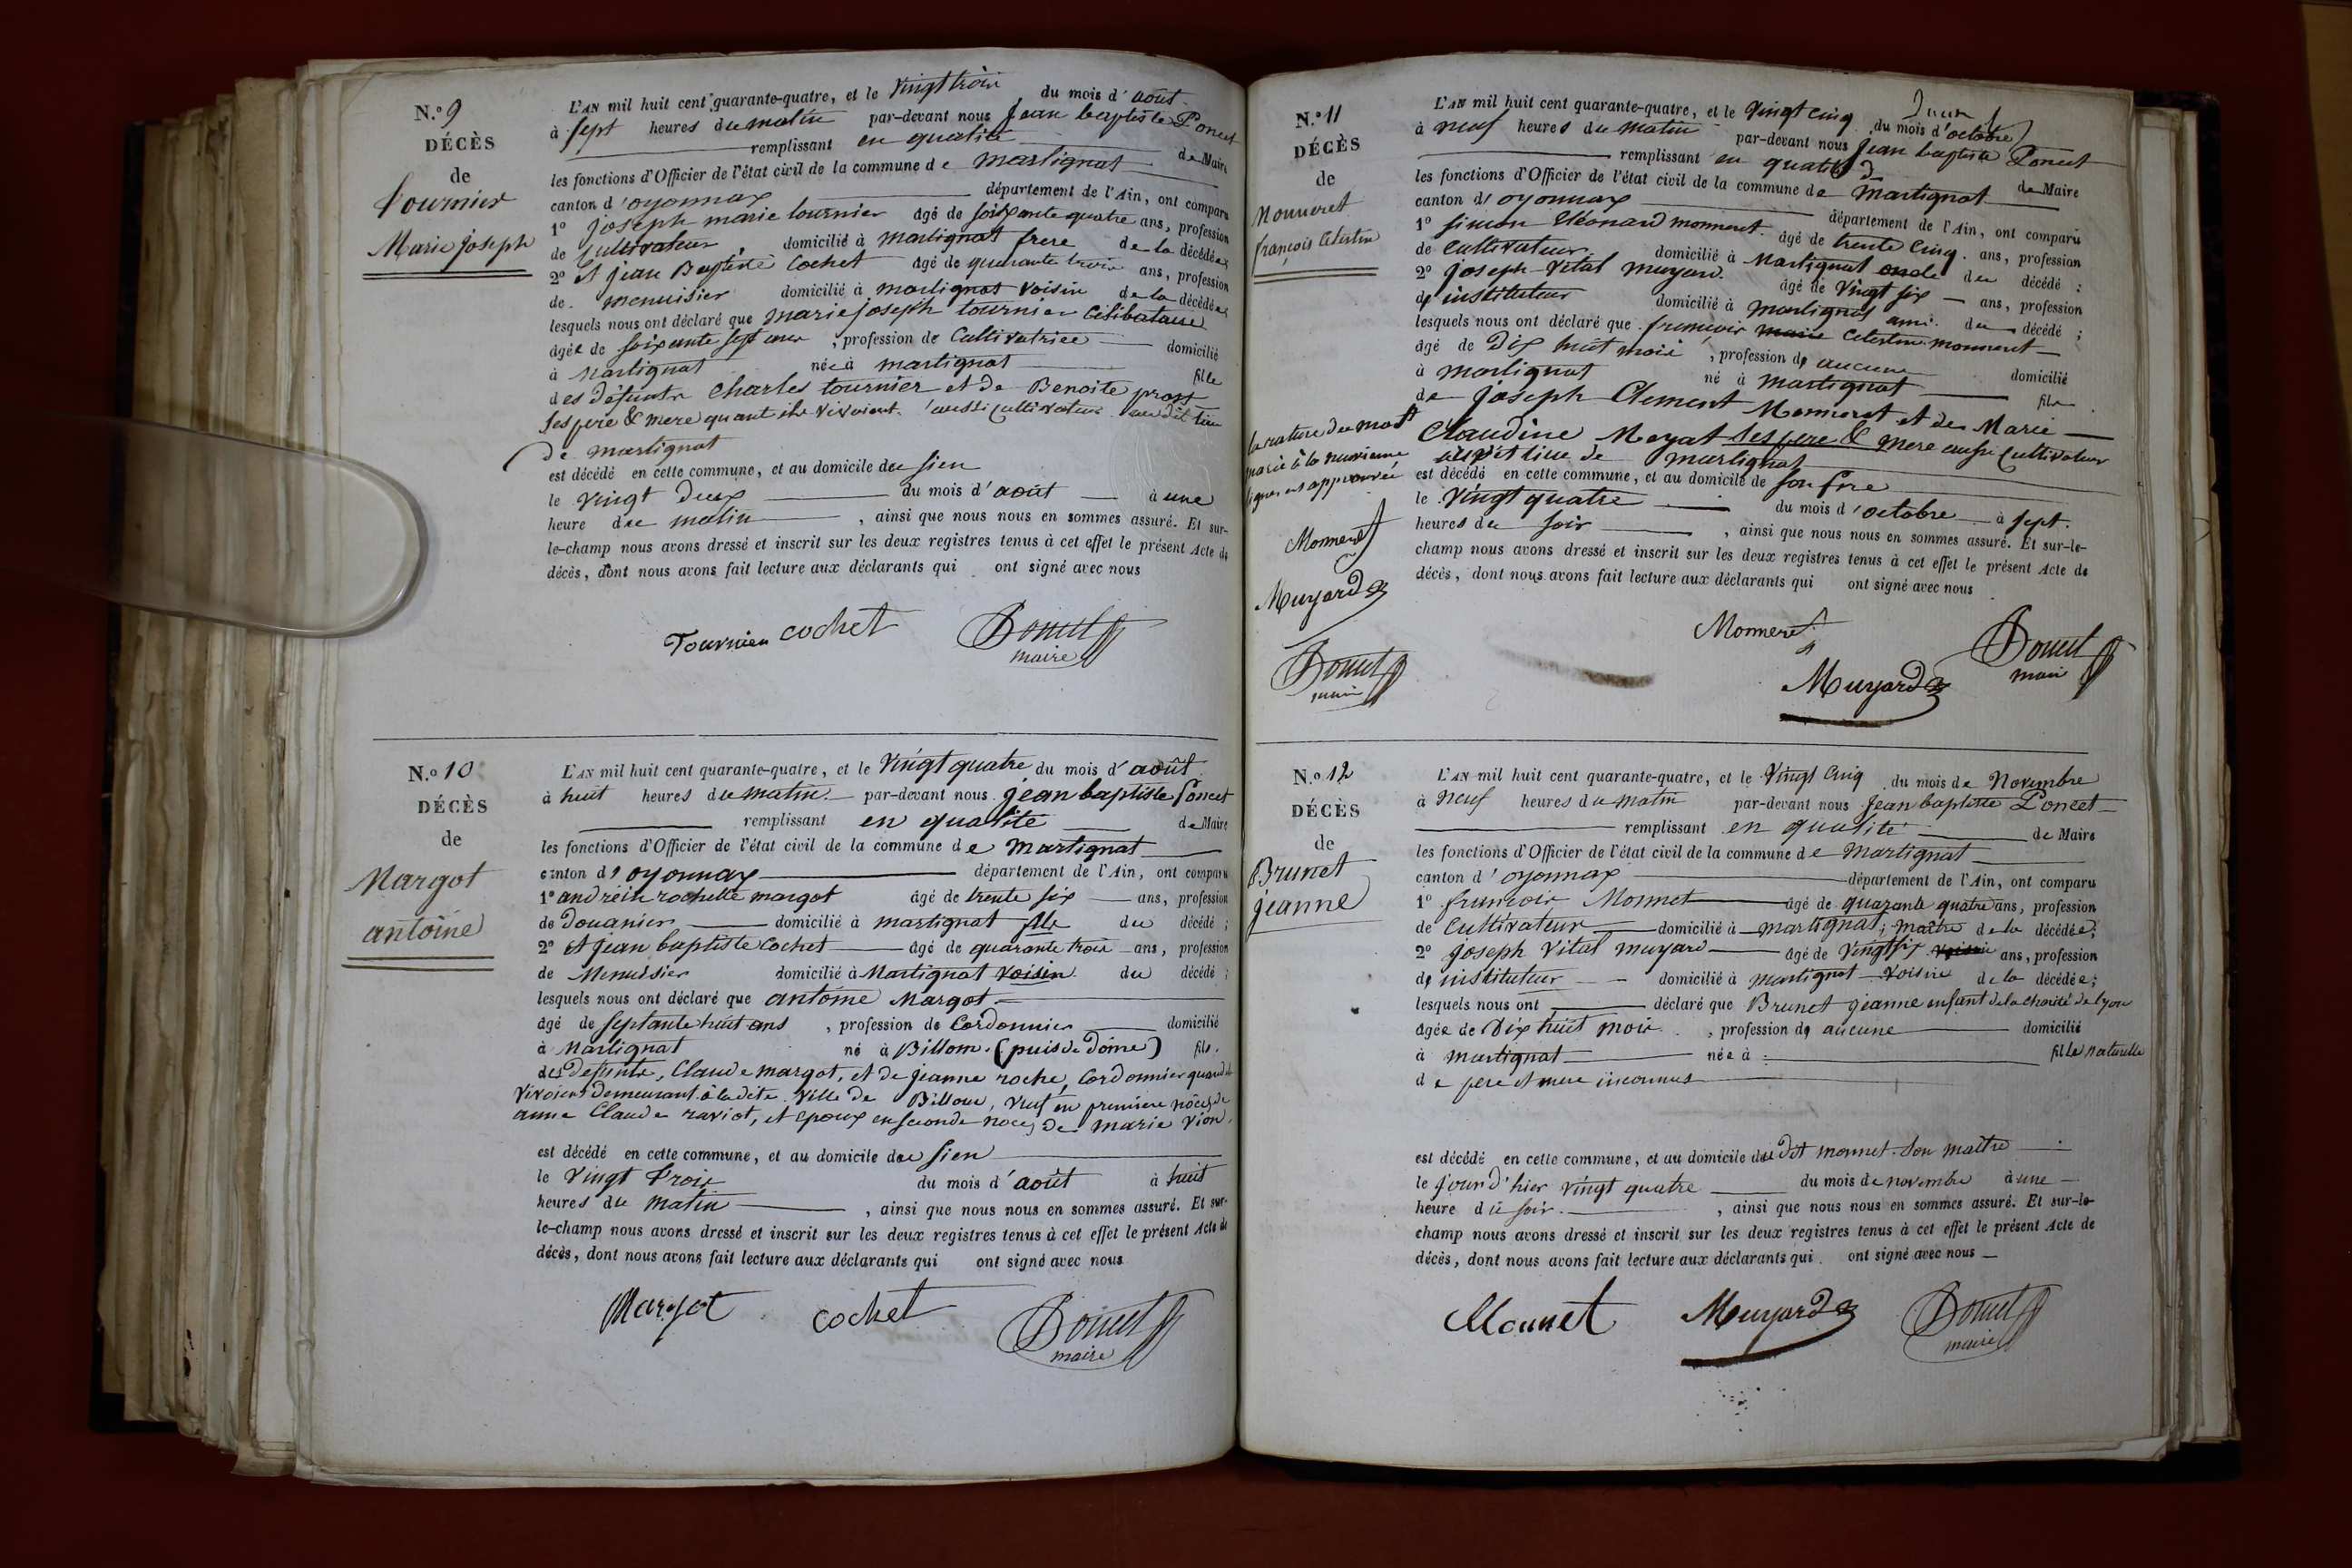 N.° 9
DÉCÈS
de
Tournier
Marie Joseph
L'AN mil huit cent quarante-quatre, et le Vingt trois du mois d'août
à sept heures du matin par-devant nous Jean baptiste Poncet
remplissant en qualité de Maire
les fonctions d'Officier de l'état civil de la commune de martignat
canton d'oyonnax département de l'Ain, ont comparu
1° joseph marie tournier âgé de soixante quatre ans, profession
de Cultivateur, domicilié à martignat frere de la décédée;
2° Et jean Baptiste Cochet âgé de quarante trois ans, profession
de menuisier domicilié à martignat voisin de la décédée;
lesquels nous ont déclaré que marie joseph tournier Célibataire
âgée de soixante sept ans, profession de Cultivatrice domicilié
à Martignat née à martignat fille
des défunts Charles tournier et de Benoite prost
ses pere & mere quant ils vivoient aussi Cultivateurs au dit lieu
de martignat
est décédé en cette commune, et au domicile du sien
le Vingt Deux du mois d'août à une
heure du matin, ainsi que nous nous en sommes assuré. Et sur-
le-champ nous avons dressé et inscrit sur les deux registres tenus à cet effet le présent Acte de
décès, dont nous avons fait lecture aux déclarants qui ont signé avec nous
Tournier cochet Poncet
maire
N.° 10
DÉCÈS
de
Margot
antoine
L'AN mil huit cent quarante-quatre, et le Vingt quatre du mois d'août
à huit heures du matin par-devant nous jean baptiste Poncet
remplissant en qualité de Maire
les fonctions d'Officier de l'état civil de la commune de Martignat
canton d'oyonnax département de l'Ain, ont comparu
1° rochette margot âgé de trente six ans, profession
de Douanier domicilié à martignat fils du décédé;
2° Et Jean baptiste Cochet âgé de quarante trois ans, profession
de Menuisier domicilié à Martignat voisin du décédé;
lesquels nous ont déclaré que antoine Margot
âgé de septante huit ans, profession de Cordonnier domicilié
à Martignat né à Billom (puis de Dôme) fils
des Defunts, Claude margot, et de jeanne roche, Cordonnier quand ils
vivoient Demeurant à la dite Ville de Billom, veuf en premiere nôces de
anne Claude raviot, et epoux en seconde noces de marie Vion
est décédé en cette commune, et au domicile du sien
le Vingt Trois du mois d'août à huit
heures du Matin, ainsi que nous nous en sommes assuré. Et sur-
le-champ nous avons dressé et inscrit sur les deux registres tenus à cet effet le présent Acte de
décès, dont nous avons fait lecture aux déclarants qui ont signé avec nous
Margot cochet Poncet
maire
N.° 11
DÉCÈS
de
Monneret
françois Celestin
L'AN mil huit cent quarante-quatre, et le Vingt Cinq du mois d'octobre
à neuf heures du matin par-devant nous Jean baptiste Poncet
remplissant en qualité de Maire
les fonctions d'Officier de l'état civil de la commune de Martignat
canton d'oyonnax département de l'Ain, ont comparu
1° simon Cléonard monneret âgé de trente Cinq ans, profession
de Cultivateur domicilié à Martignat oncle du décédé;
2° joseph-Vital muyard âgé de Vingt six ans, profession
de instituteur domicilié à martignat ami du décédé;
lesquels nous ont déclaré que françois marie Celestin monneret
âgé de Dix huit mois, profession de aucune domicilié
à martignat né à martignat fils
de Joseph Clement Monneret et de Marie
Claudine Meyat ses pere & mere aussi Cultivateur
lieu de martignat
la rature du mot
marie à la neuvieme
ligne est approuvée
Monneret
Muyard
Poncet
maire
est décédé en cette commune, et au domicile de son pere
le Vingt quatre du mois d'octobre à sept
heures du soir, ainsi que nous nous en sommes assuré. Et sur-le-
champ nous avons dressé et inscrit sur les deux registres tenus à cet effet le présent Acte de
décès, dont nous avons fait lecture aux déclarants qui ont signé avec nous
Monneret Poncet
maire
Muyard
N.° 12
DÉCÈS
de
Brunet
jeanne
L'AN mil huit cent quarante-quatre, et le Vingt Cinq du mois de Novembre
à neuf heures du matin par-devant nous Jean baptiste Poncet
remplissant en qualité de Maire
les fonctions d'Officier de l'état civil de la commune de Martignat
canton d'oyonnax département de l'Ain, ont comparu
1° françois Monnet âgé de quarante quatre ans, profession
de Cultivateur domicilié à martignat; maître de la décédée;
2° joseph Vital muyard âgé de Vingt six voisin ans, profession
de instituteur domicilié à martignat voisin de la décédée;
lesquels nous ont déclaré que Brunet jeanne enfant de la charité de lyon
âgée de Dix huit mois, profession de aucune domicilié
à martignat née à fille naturelle
de pere et mere inconnus
est décédé en cette commune, et au domicile du dit monnet son maître
le jour d'hier vingt quatre du mois de novembre à une
heure du soir, ainsi que nous nous en sommes assuré. Et sur-le-
champ nous avons dressé et inscrit sur les deux registres tenus à cet effet le présent Acte de
décès, dont nous avons fait lecture aux déclarants qui ont signé avec nous
Monnet Muyard Poncet
maire